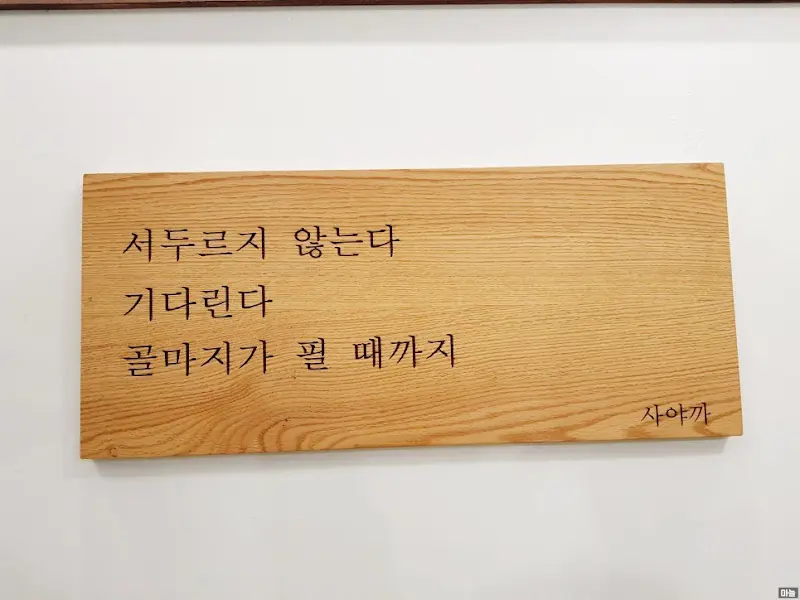 서두르지 않는다
기다린다
골마지가 필 때까지
사야까
마늘